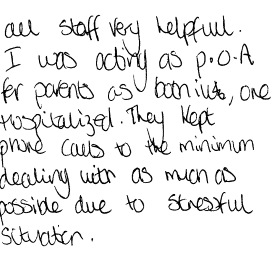 all staff very helpful.
I was acting as P.O.A
for parents as both ill, one
Hospitalized. They kept
phone calls to the minimum
dealing with as much as
possible due to stressful
situation.